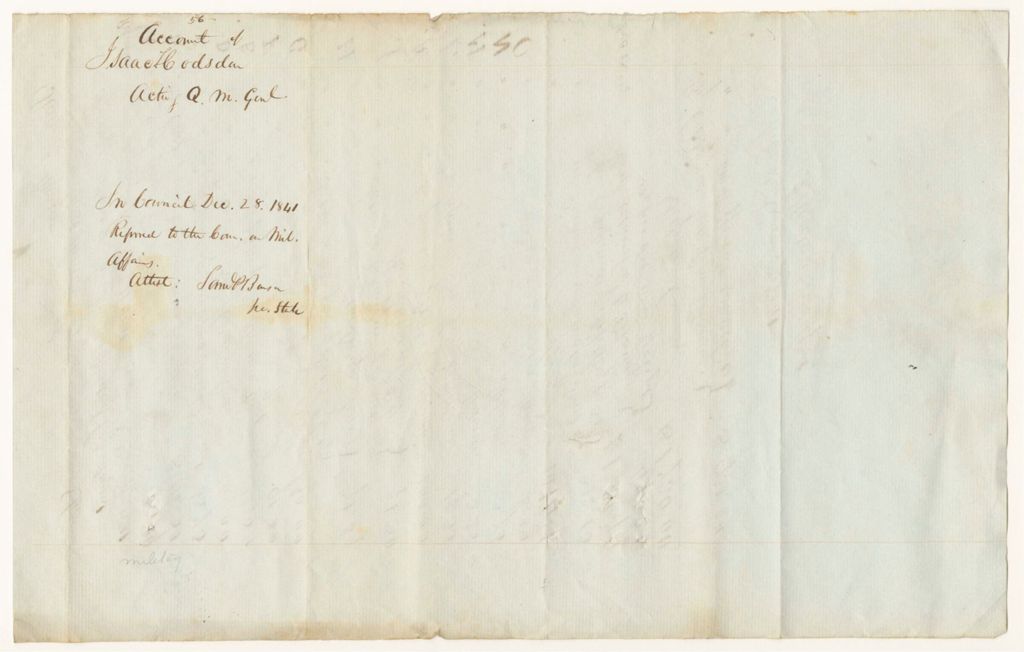 56
Account of
Isaac Hodsdon
Acting Q. M. Genl.
In Council Dec. 28. 1841
Referred to the Com. on Mil.
Affairs.
Attest:
Sec. State
military